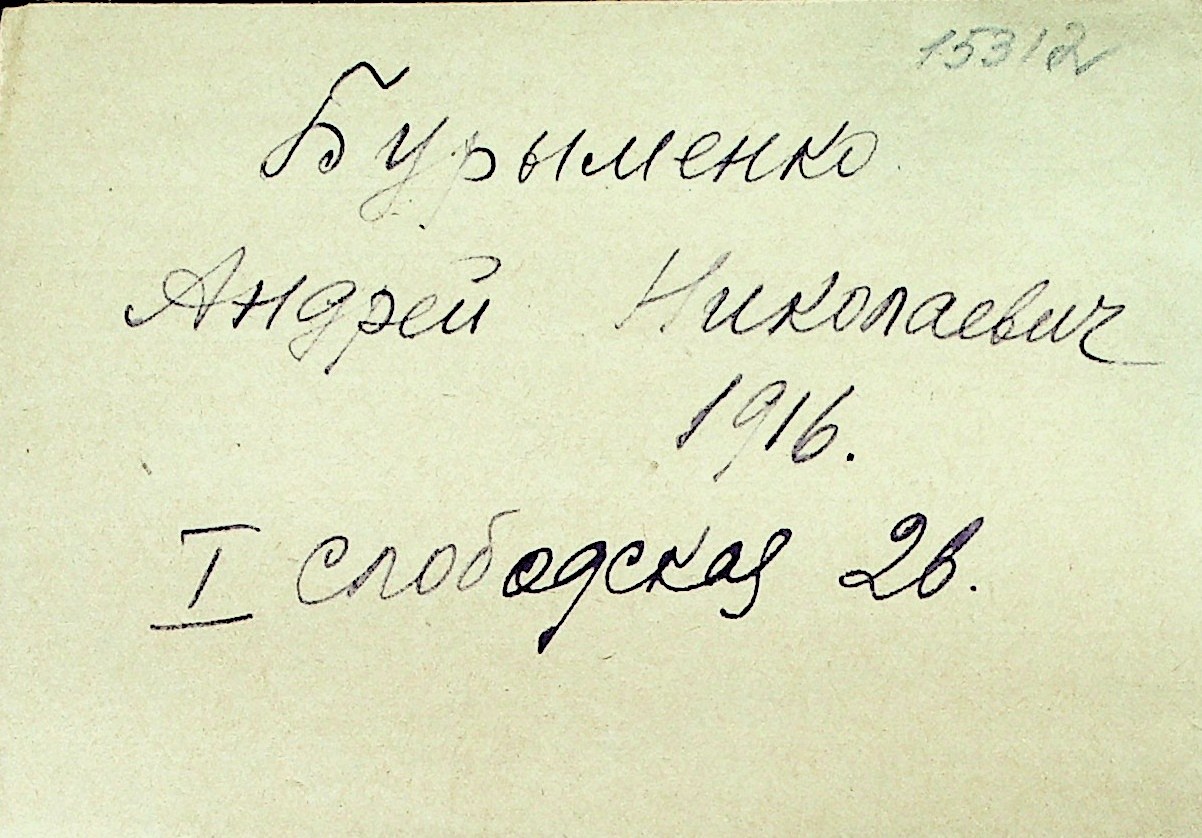 15312
Бурыменко
Андрей Николаевич
1916.
I слободская 26.